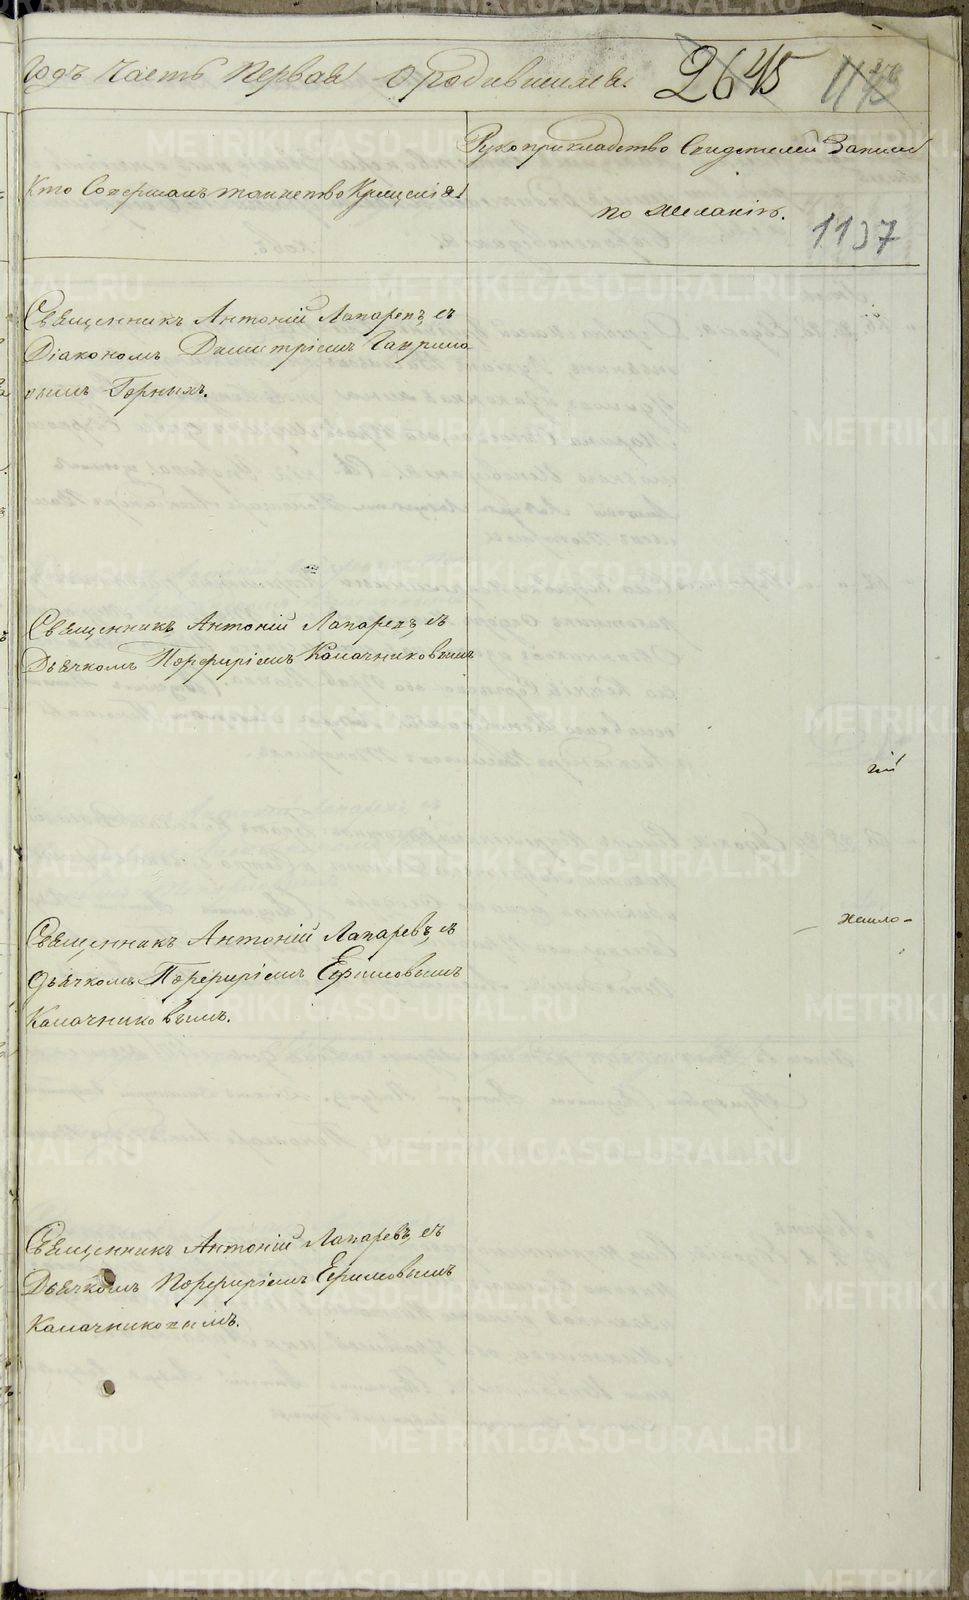 Годъ Часть Первая о родившихся. 2645 1143
Рукоприкладство Свидетелей Записи
Кто Совершалъ таинство Крещенія
по желанію.
1137
Священникъ Антоній Лапаревъ, съ
Діакономъ Димитріемъ Гаврило
вымъ Горныхъ.
Священникъ Антоній Лапаревъ, съ
Дьячкомъ Порфиріемъ Калачниковымъ
Священникъ Антоній Лапаревъ, съ
дьячкомъ Порфиріемъ Ефимовымъ
Калачниковымъ.
Священникъ Антоній Лапаревъ, съ
Дьячкомъ Порфиріемъ Ефимовымъ
Калачниковымъ.
METRIKI.GASO-URAL.RU